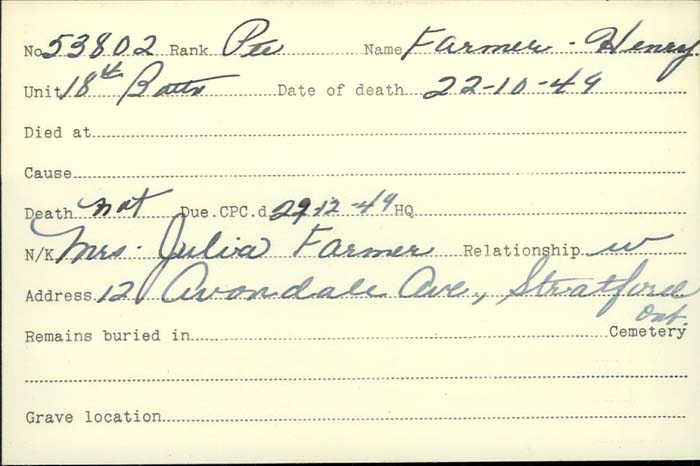 No 53802 Rank Pte Name Farmer - Henry.
Unit 18th Battn Date of death 22-10-49
Died at
Cause
Death not Due.CPC.d 29-12-49 HQ
N/K Mrs. Julia Farmer Relationship w
Address 12 Avondale Ave., Stratford
Ont.
Remains buried in Cemetery
Grave location